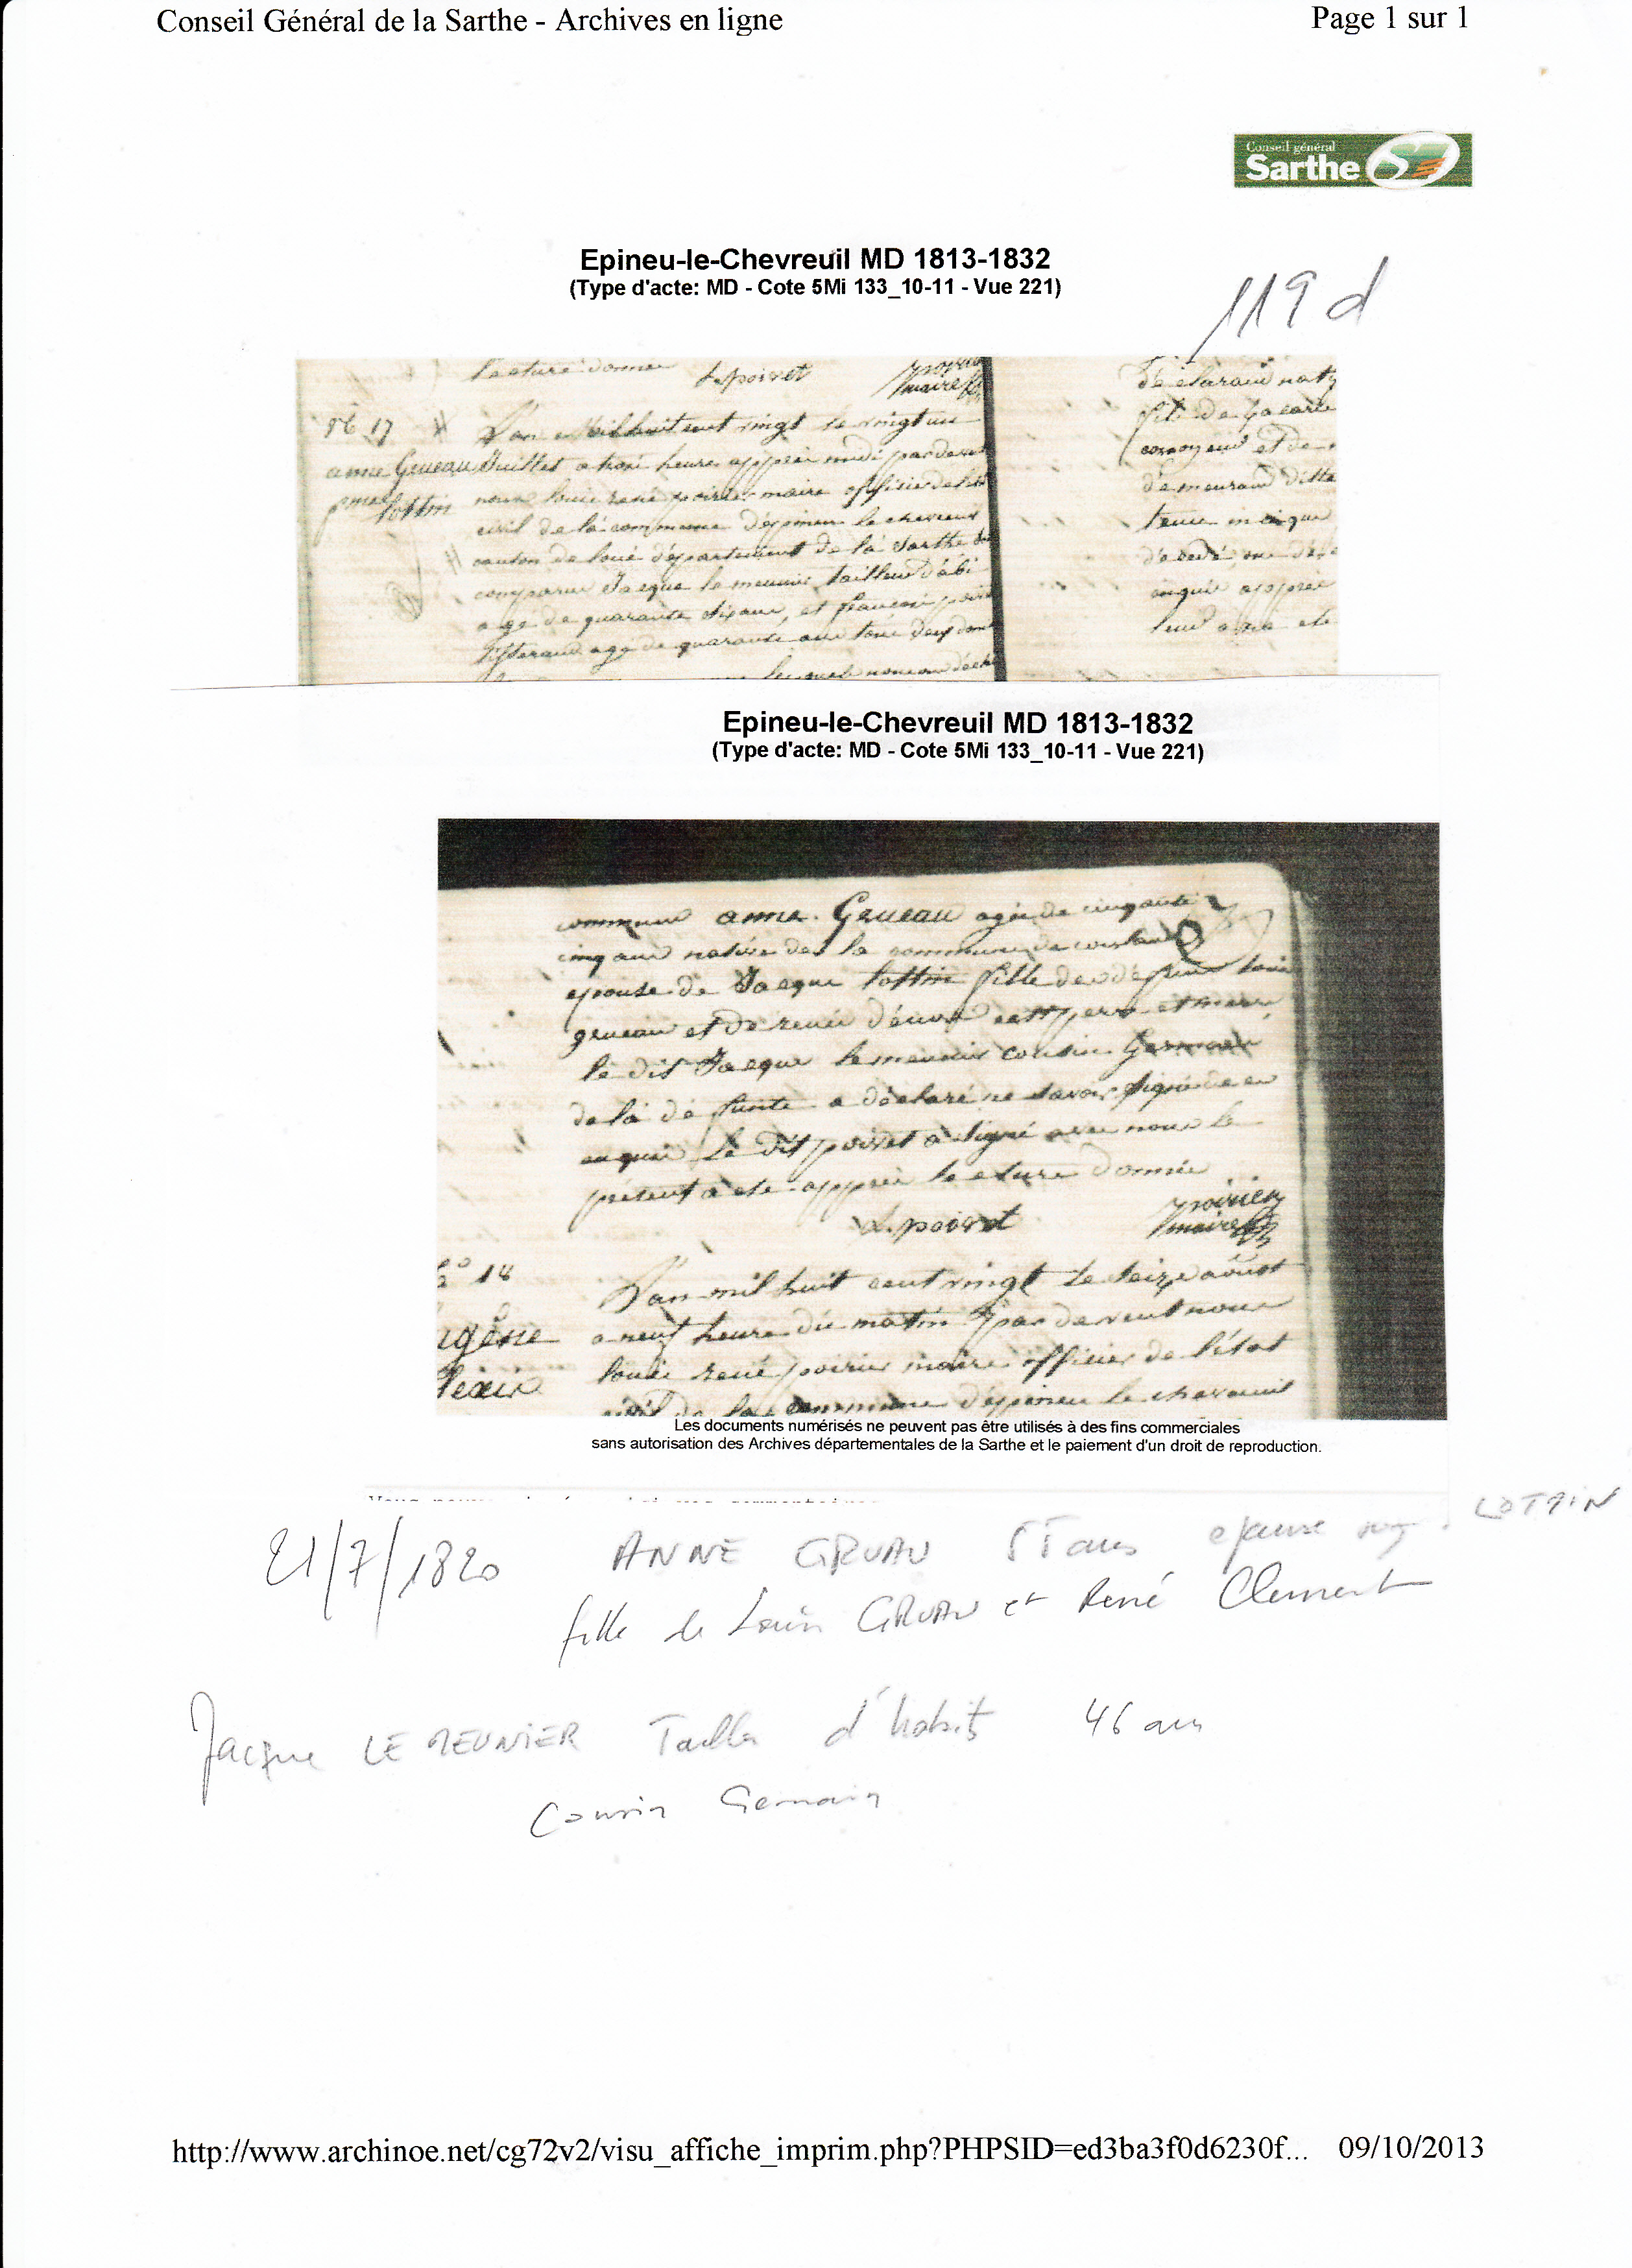 Conseil Général de la Sarthe - Archives en ligne
Page 1 sur 1
Conseil général
Sarthe
Epineu-le-Chevreuil MD 1813-1832
(Type d'acte: MD - Cote 5Mi 133_10-11 - Vue 221)
119 d
lecture donnee
L. poivet
maire
17
L'an Mil huit cent vingt le vingt un
anne Grueau
Juillet a trois heures apprès midi par devant
lottin
nous louis rené poirier maire officier de l'état
civil de la commune d'épineu le chevreuil
canton de loué département de la Sarthe
comparu Jacque le meunier tailleur d'abi
agé de quarante six ans, et françois poivet
tisserand agé de quarante ans tous deux
lesquels nous ont déclaré
fils de
et de
demeurant
apprès
a été
Epineu-le-Chevreuil MD 1813-1832
(Type d'acte: MD - Cote 5Mi 133_10-11 - Vue 221)
commune anne Grueau agée de cinquante
cinq ans native de la commune de
epouse de Jacque lottin fille de defunt louis
grueau et de renée père et mere
le dit Jacque le meunier cousin Germain
de la défunte a déclaré ne savoir signé de ce
enquis le dit poivet a signé avec nous le
présent a été apprès lecture donnée
L. poivet
poirier
maire
18
L'an mil huit cent vingt le seize aoust
a neuf heure du matin par devent nous
louis rené poirier maire officier de l'état
civil de la commune d'épineu le chevreuil
Les documents numérisés ne peuvent pas être utilisés à des fins commerciales
sans autorisation des Archives départementales de la Sarthe et le paiement d'un droit de reproduction.
21/7/1820 ANNE GRUAU 55 ans epouse LOTTIN
fille de Louis GRUAU et René Clement
Jacque LE MEUNIER Tailler d'habits 46 ans
Cousin Germain
http://www.archinoe.net/cg72v2/visu_affiche_imprim.php?PHPSID=ed3ba3f0d6230f... 09/10/2013